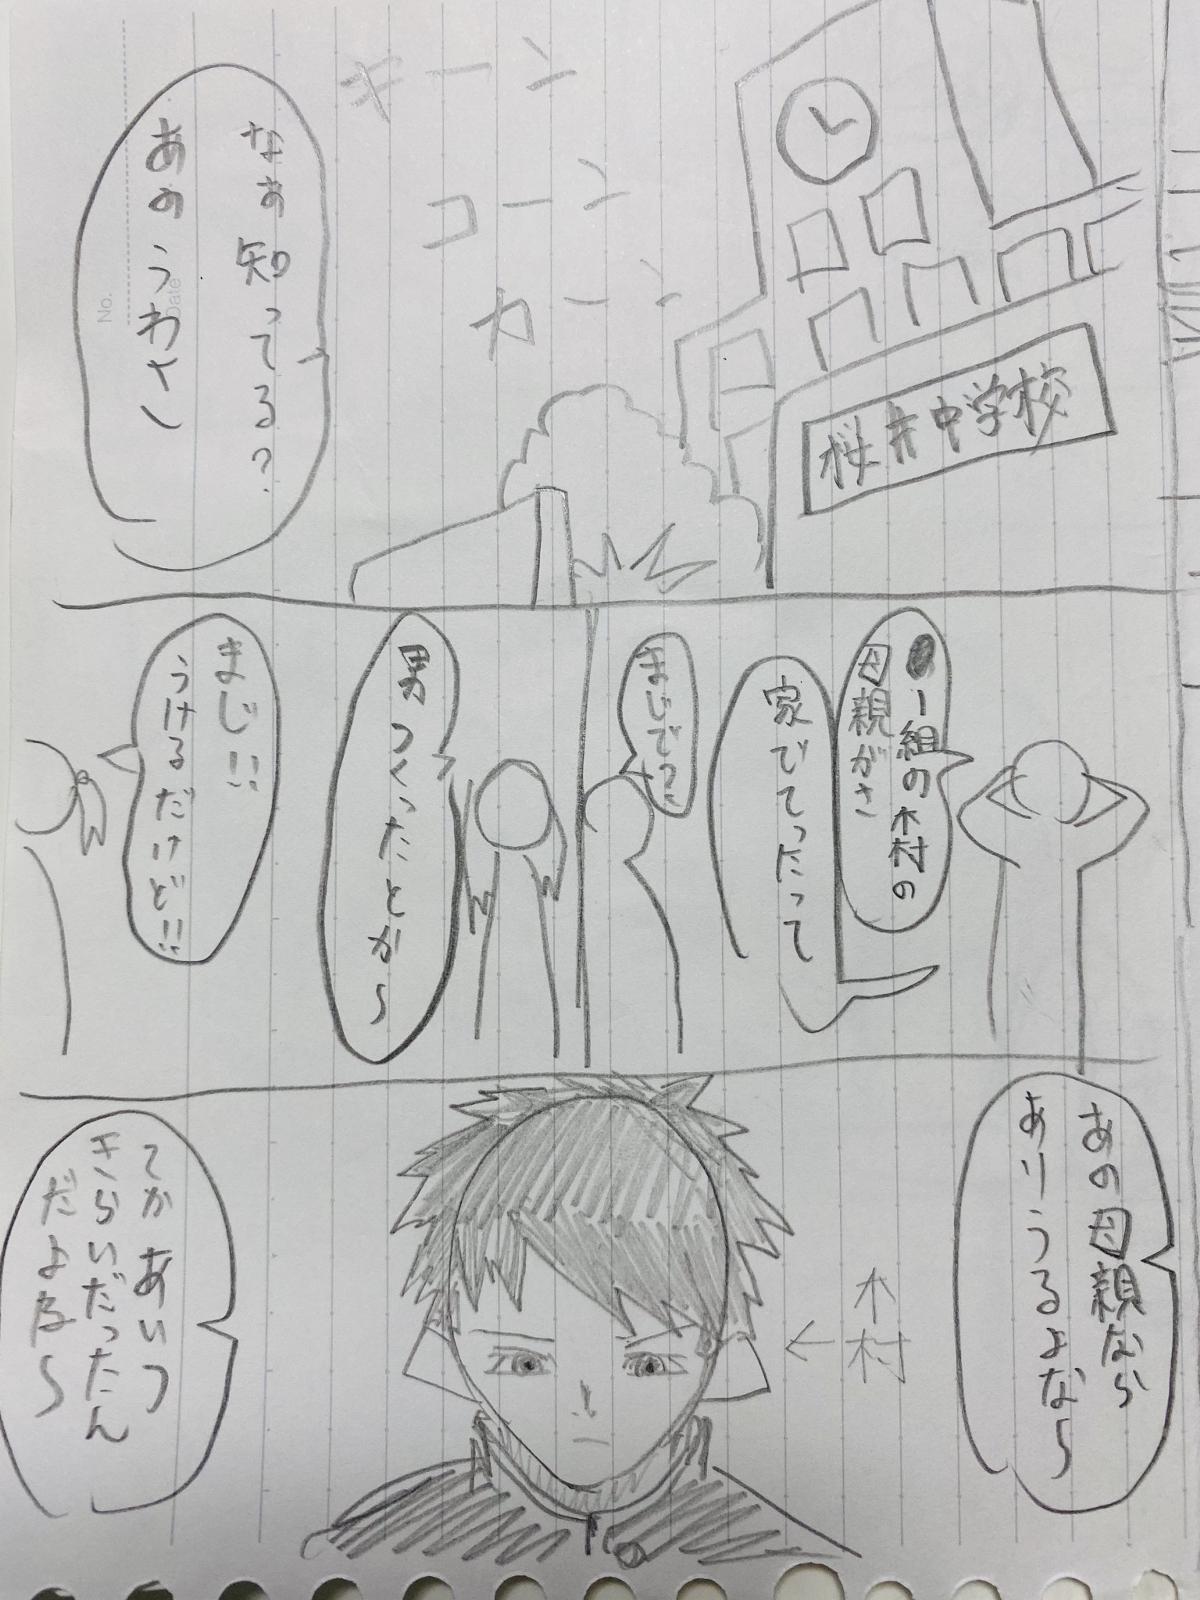 キーン
コーン
カーン
桜井中学校
なぁ知ってる?
あのうわさ
1組の木村の
母親がさ
家でてったって
まじで?
男つくったとか〜
まじ!!
うけるだけど!!
あの母親なら
ありうるよな〜
木村
てかあいつ
きらいだったん
だよな〜
No.
Date